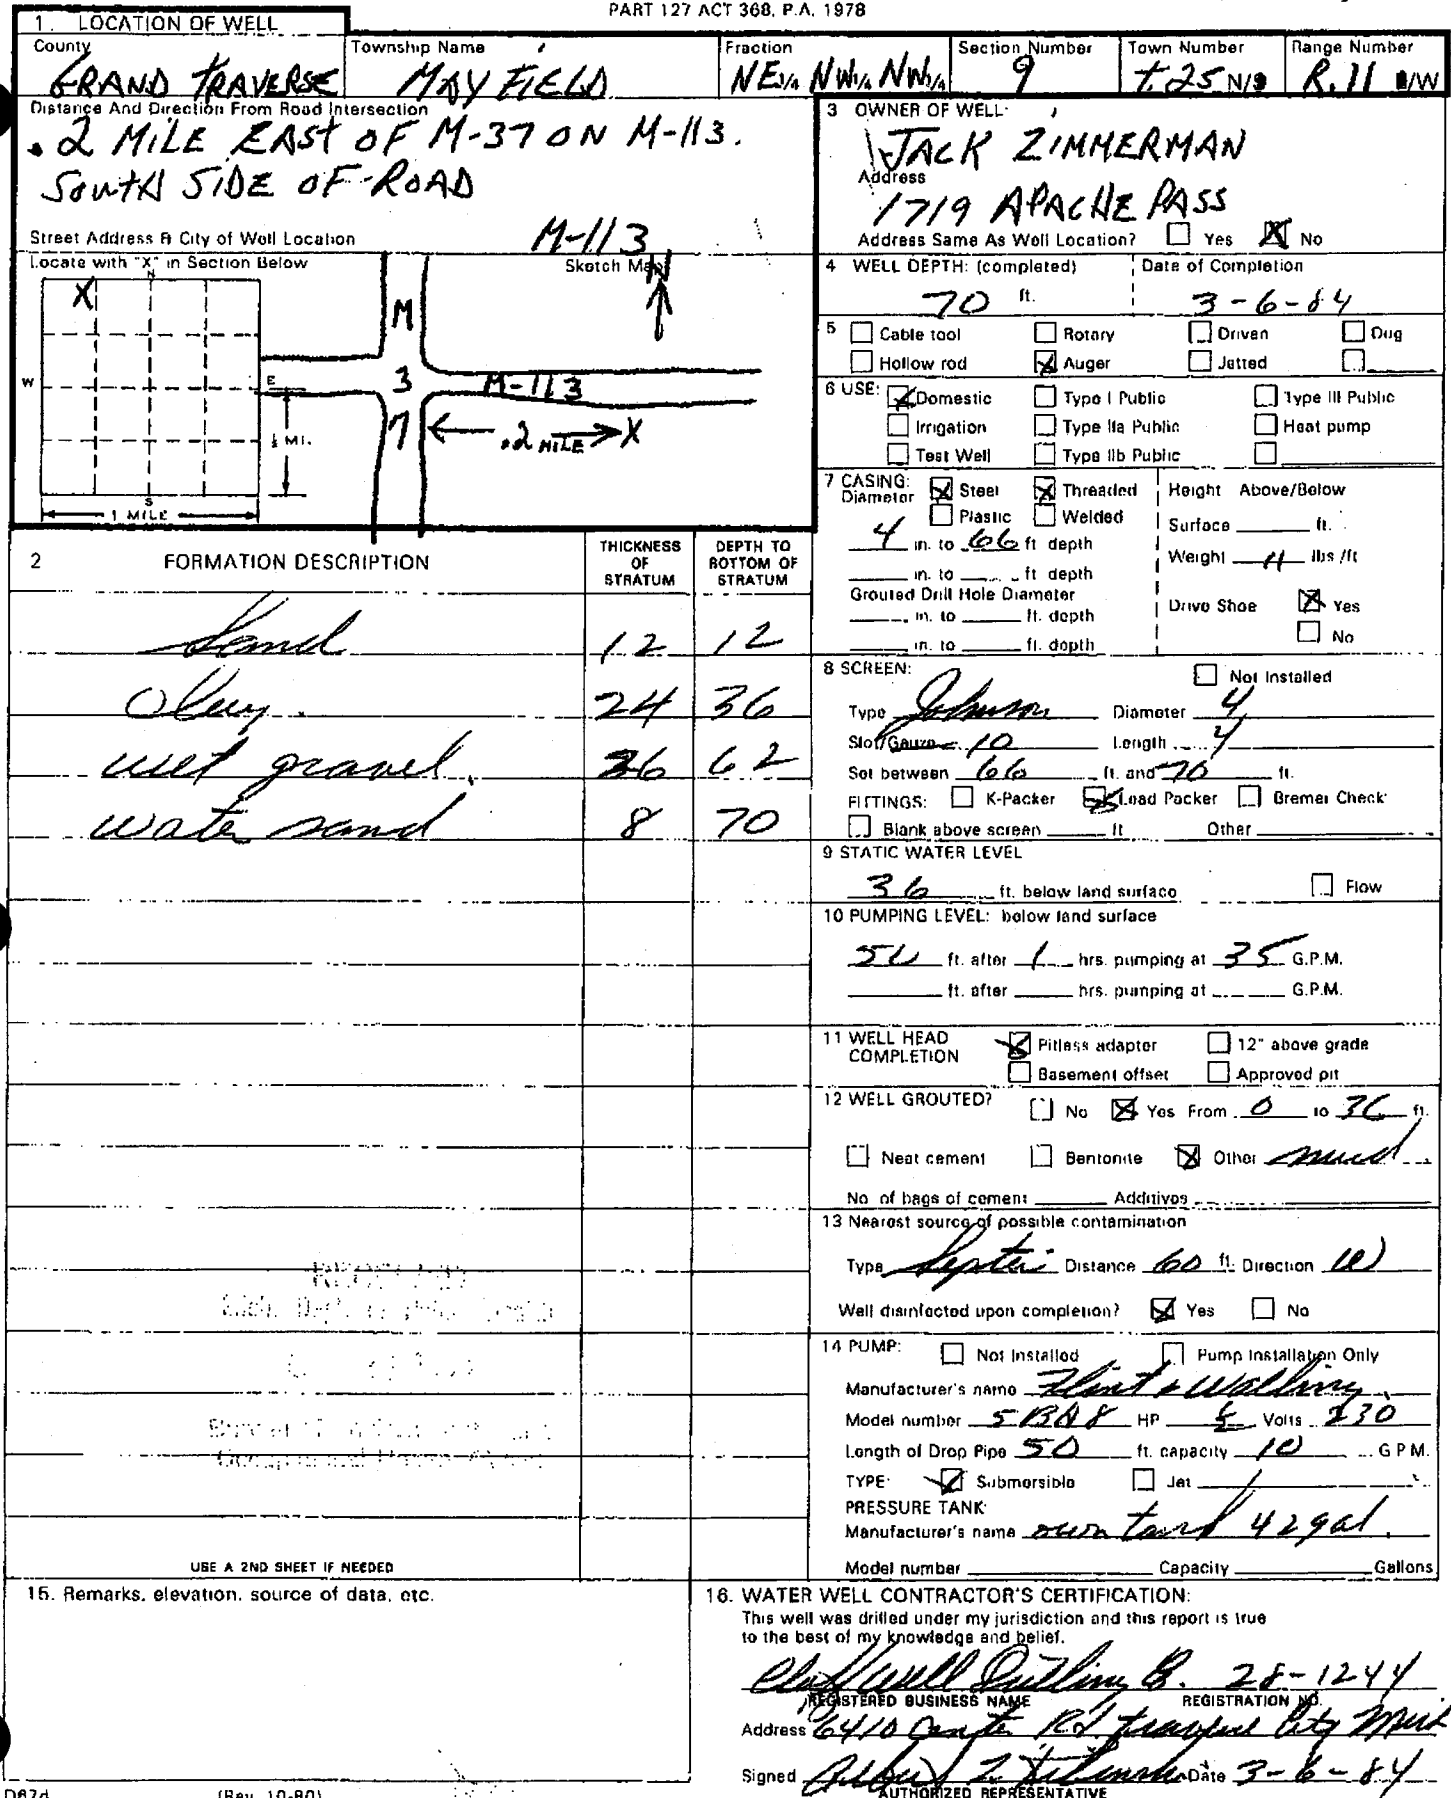 PART 127 ACT 368, P.A. 1978
1. LOCATION OF WELL
County
GRAND TRAVERSE
Township Name
MAYFIELD
Fraction
NE¼ NW¼ NW¼
Section Number
9
Town Number
T.25 N/S
Range Number
R.11 E/W
Distance And Direction From Road Intersection
.2 MILE EAST OF M-37 ON M-113.
SOUTH SIDE OF ROAD
Street Address & City of Well Location
Locate with "X" in Section Below
Sketch Map
M-113
N
N
X
W
E
S
½ MI.
1 MILE
M
3
7
M-113
.2 MILE
X
2 FORMATION DESCRIPTION
THICKNESS OF STRATUM
DEPTH TO BOTTOM OF STRATUM
Sand 12 12
Clay 24 36
wet gravel 26 62
water sand 8 70
USE A 2ND SHEET IF NEEDED
3 OWNER OF WELL:
JACK ZIMMERMAN
Address
1719 APACHE PASS
Address Same As Well Location? Yes X No
4 WELL DEPTH: (completed)
70 ft.
Date of Completion
3-6-84
5 Cable tool Rotary Driven Dug
Hollow rod Auger Jetted
6 USE: Domestic Type I Public Type III Public
Irrigation Type IIa Public Heat pump
Test Well Type IIb Public
7 CASING: Steel Threaded
Diameter Plastic Welded
4 in. to 66 ft depth
in. to ft depth
Grouted Drill Hole Diameter
in. to ft. depth
in. to ft. depth
Height Above/Below
Surface ft.
Weight 11 lbs/ft
Drive Shoe Yes
No
8 SCREEN: Not Installed
Type Johnson Diameter 4
Slot/Gauze 10 Length 4
Set between 66 ft. and 70 ft.
FITTINGS: K-Packer Lead Packer Bremer Check
Blank above screen ft Other
9 STATIC WATER LEVEL
36 ft. below land surface Flow
10 PUMPING LEVEL: below land surface
ft. after 1 hrs. pumping at 35 G.P.M.
ft. after hrs. pumping at G.P.M.
11 WELL HEAD COMPLETION
Pitless adapter 12" above grade
Basement offset Approved pit
12 WELL GROUTED? No Yes From 0 to 36 ft.
Neat cement Bentonite Other mud
No. of bags of cement Additives
13 Nearest source of possible contamination
Type Septic Distance 60 ft. Direction W
Well disinfected upon completion? Yes No
14 PUMP: Not Installed Pump Installation Only
Manufacturer's name Flint & Walling
Model number HP ½ Volts 230
Length of Drop Pipe 50 ft. capacity 10 G.P.M.
TYPE: Submersible Jet
PRESSURE TANK:
Manufacturer's name own tank 42 gal.
Model number Capacity Gallons
15. Remarks, elevation, source of data, etc.
16. WATER WELL CONTRACTOR'S CERTIFICATION:
This well was drilled under my jurisdiction and this report is true
to the best of my knowledge and belief.
Well Drilling Co. 28-1244
REGISTERED BUSINESS NAME REGISTRATION NO.
Address 6410 Center Rd. Traverse City Mich
Signed Date 3-6-84
AUTHORIZED REPRESENTATIVE
D67d (Rev. 10-80)